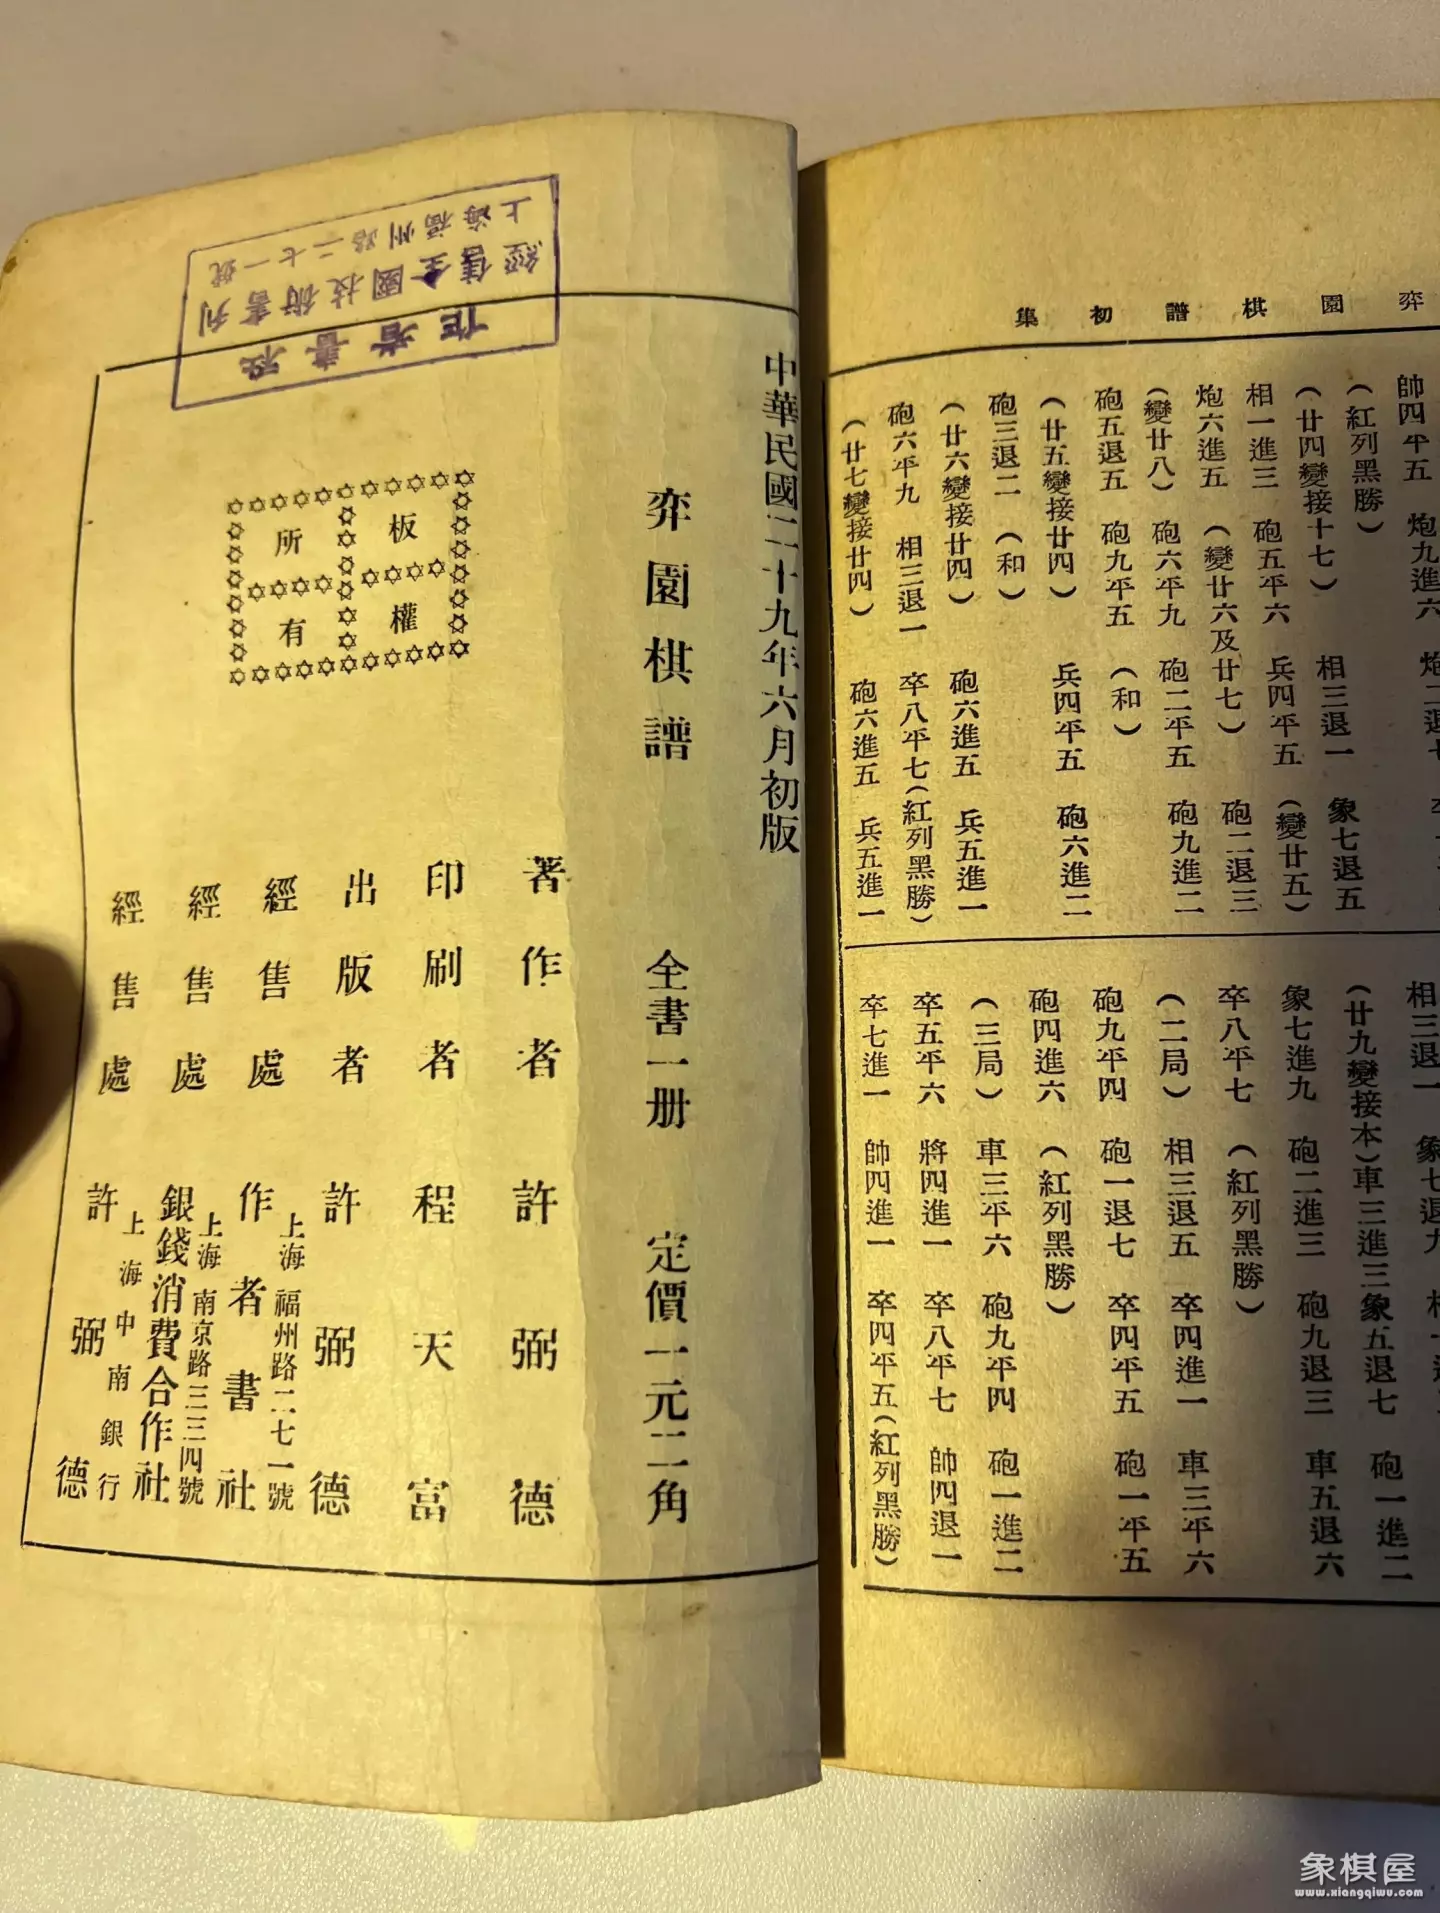 弈園棋譜初集
帥四平五 炮九進六 炮二退七
(紅列黑勝)
(廿四變接十七) 相三退一 象七退五
相一進三 砲五平六 兵四平五 (變廿五)
炮六進五 (變廿六及廿七) 砲二退三
(變廿八) 砲六平九 砲二平五 砲九進二
砲五退五 砲九平五 (和)
(廿五變接廿四) 兵四平五 砲六進二
砲三退二 (和)
(廿六變接廿四) 砲六進五 兵五進一
砲六平九 相三退一 卒八平七(紅列黑勝)
(廿七變接廿四) 砲六進五 兵五進一
相三退一 象七退九
(廿九變接本)車三進三象五退七 砲一進二
象七進九 砲二進三 砲九退三 車五退六
卒八平七 (紅列黑勝)
(二局) 相三退五 卒四進一 車三平六
砲九平四 砲一退七 卒四平五 砲一平五
砲四進六 (紅列黑勝)
(三局) 車三平六 砲九平四 砲一進二
卒五平六 將四進一 卒八平七 帥四退一
卒七進一 帥四進一 卒四平五(紅列黑勝)
中華民國二十九年六月初版
弈園棋譜 全書一册 定價一元二角
著作者 許弼德
印刷者 程天富
出版者 許弼德
經售處 上海福州路二七一號
作者書社
經售處 上海南京路三三四號
銀錢消費合作社
經售處 上海中南銀行
許弼德
板權
所有
作者書社
經售全國技術書列
上海福州路二七一號
象棋屋
www.xiangqiwu.com